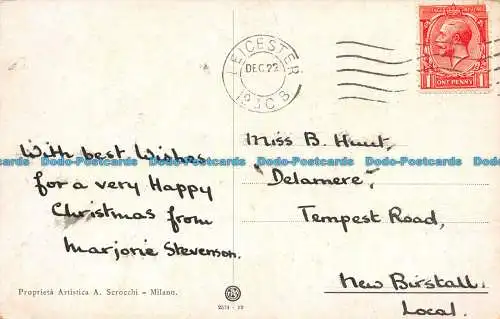 LEICESTER
DEC 22
193C 8
ONE PENNY
With best Wishes
for a very Happy
Christmas from
Marjorie Stevenson.
Miss B. Hunt,
"Delamere",
Tempest Road,
New Birstall.
Local.
Proprietà Artistica A. Scrocchi - Milano.
Dodo-Postcards Dodo-Postcards Dodo-Postcards Dodo-Postcards Dodo-Postcards